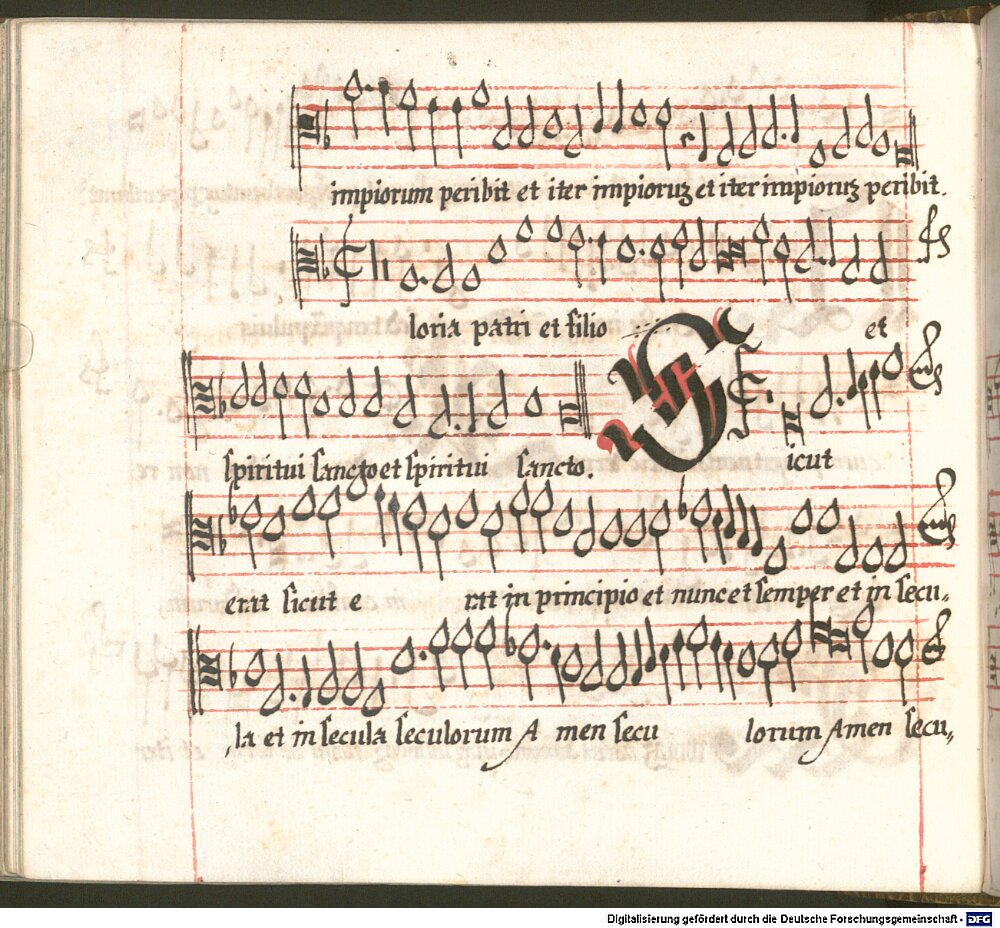 impiorum peribit et iter impioruꝫ et iter impioruꝫ peribit.
loria patri et filio et
spiritui sancto et spiritui sancto.
S icut
erat sicut e rat in principio et nunc et semper et in secu-
la et in secula seculorum Amen secu lorum Amen secu,,
Digitalisierung gefördert durch die Deutsche Forschungsgemeinschaft - DFG